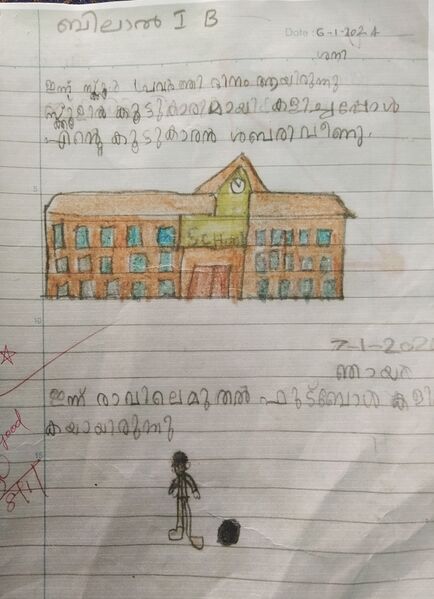 ബിലാൽ I B
Date: 6-1-2024
ശനി
ഇന്ന് സ്കൂൾ പ്രവർത്തി ദിനം ആയിരുന്നു
സ്കൂളിൽ കൂട്ടുകാരുമായി കളിച്ചപ്പോൾ
എന്റെ കൂട്ടുകാരൻ ശബരി വീണു.
SCHOOL
7-1-202
ഞായർ
ഇന്ന് രാവിലെ മുതൽ ഫുട്ബോൾ കളി
കയായിരുന്നു
good
8/1/